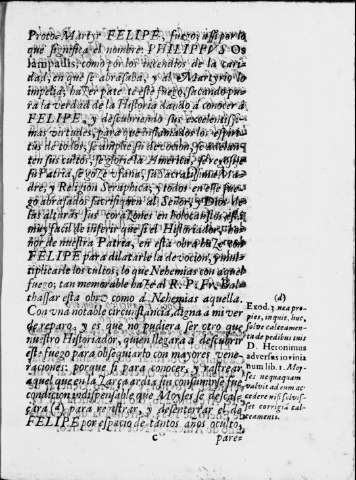 Proto-Martyr FELIPE, fuego, assi por lo
que significa el nombre: PHILIPPVS Os
lampadis, como por los incendios de la cari-
dad, en que se abrasaba, y al Martyrio lo
impelia, hazer patête este fuego, sacando pu-
ra la verdad de la Historia dando à conocer à
FELIPE, y descubriendo sus excelentissi-
mas virtudes, para que inflamados los espiri-
tus de todos, se amplie su devocion, se adelan-
ten sus cultos, se glorîe la America, se regosije
su Patria, se goze vfana, su Sacratissima Ma-
dre, y Religion Seraphica, y todos en esse fue-
go abrasados sacrifiquen al Señor, y Dios de
los altares sus corazones en holocaustos, está
muy facil de inferir que si el Historiador, ho-
nor de nuestra Patria, en esta obra haze con
FELIPE para dilatarle la devocion, y mul-
tiplicarle los cultos, lo que Nehemias con aquel
fuego; tan memorable haze al R. P. Fr. Bal-
thassar esta obra como à Nehemias aquella.
Con vna notable circunstancia, digna à mi ver
de reparo, y es que no pudiera ser otro que
nuestro Historiador, quien llegara à descubrir
este fuego para obsequiarlo con mayores vene-
raciones: porque si para conocer, y rastrear
aquel que en la Zarça ardia sin consumirse fue
condicion indispensable que Moyses se descal-
çara (d) para registrar, y desenterrar el de
FELIPE por espacio de tantos años oculto,
C pare-
(d)
Exod. 3 nea pro-
pies, inquit, huc,
solve calceamen-
ta de pedibus tuis
D. Hieronimus
adversus iovinia
num lib. 1. Moy-
ses nequaquam
valuit ad eum ac-
cedere nisi solvis-
set corrigiã cal-
ceamenti.